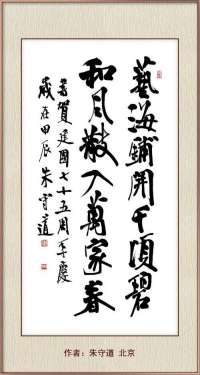 藝海鋪開千頃碧
和風散入萬家春
喜賀建國七十五周年慶
歲在甲辰朱守道
作者：朱守道 北京